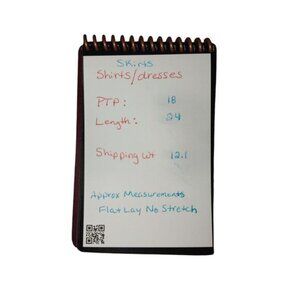 Skirts
Shirts/dresses
PTP: 18
Length: 24
Shipping Wt 12.1
Approx Measurements
Flat Lay No Stretch